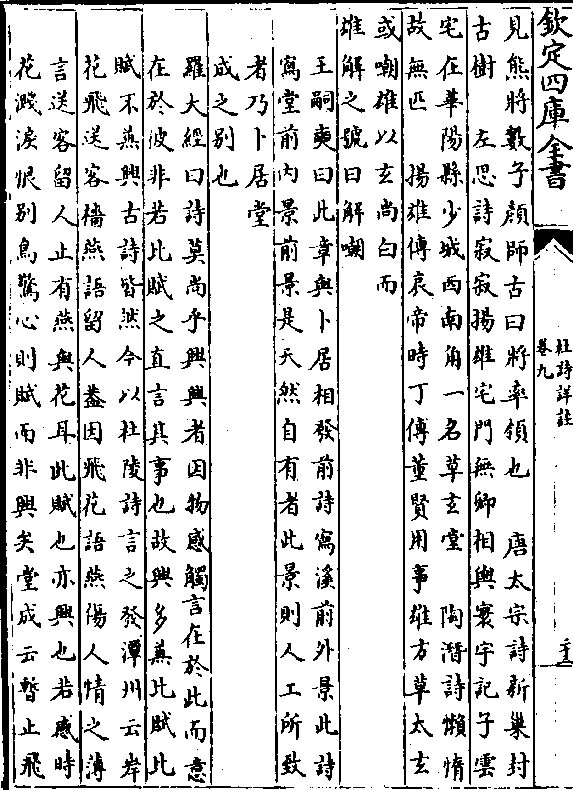 欽定四庫全書
杜詩詳註
卷九
見熊將數子顔師古曰將率領也 唐太宗詩新巢封
古樹 左思詩寂寂揚雄宅門無卿相輿寰宇記子雲
宅在華陽縣少城西南角一名草玄堂 陶潛詩懶惰
故無匹 揚雄傳哀帝時丁傅董賢用事雄方草太玄
或嘲雄以玄尚白而
雄解之號曰解嘲
王嗣奭曰此章與卜居相發前詩寫溪前外景此詩
寫堂前内景前景是天然自有者此景則人工所致
者乃卜居堂
成之别也
羅大經曰詩莫尚乎興興者因物感觸言在於此而意
在於彼非若比賦之直言其事也故興多兼比賦比
賦不兼興古詩皆然今以杜陵詩言之發潭州云岸
花飛送客檣燕語留人蓋因飛花語燕傷人情之薄
言送客留人止有燕與花耳此賦也亦興也若感時
花濺淚恨别鳥驚心則賦而非興矣堂成云暫止飛